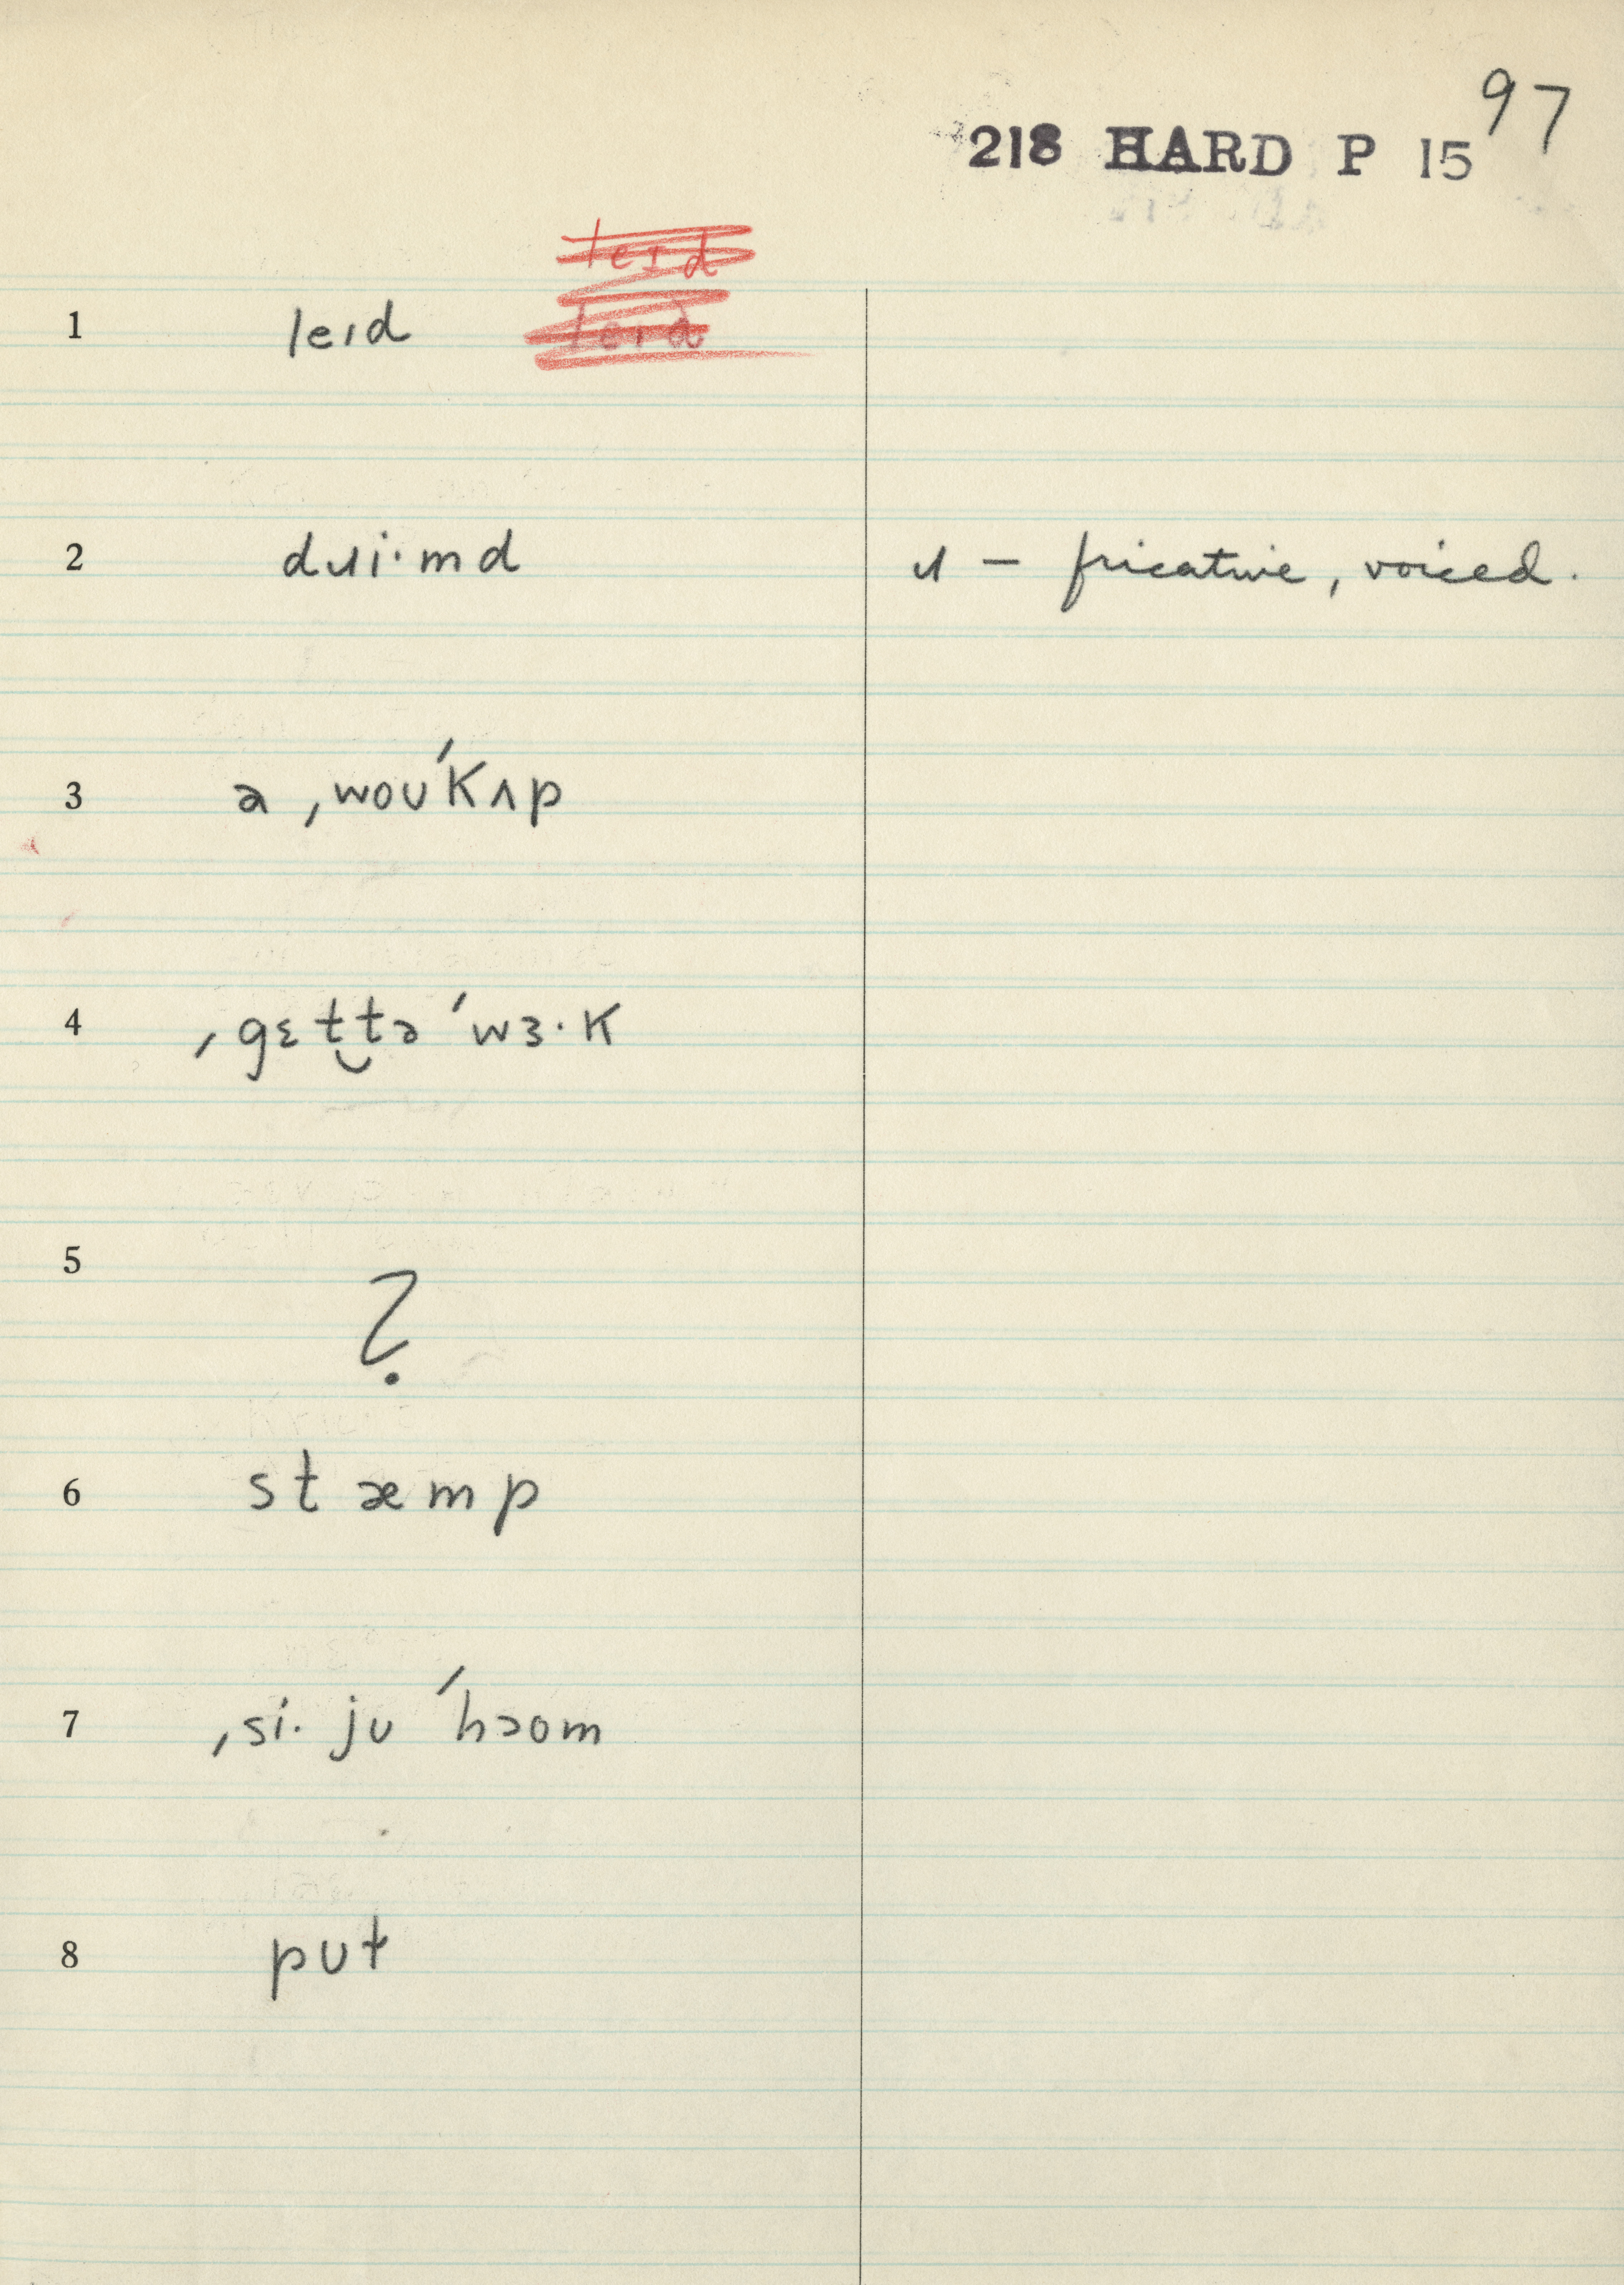 97
218 HARD P 15
leɪd
1 leɪd leɪd
2 dɹi·md ɹ — fricative, voiced.
3 ə ˌwoʊˈkʌp
4 ˌgɛt‿tə ˈwɜ·k
5 ?
6 stæmp
7 ˌsi· jʊ ˈhɔom
8 pʊt